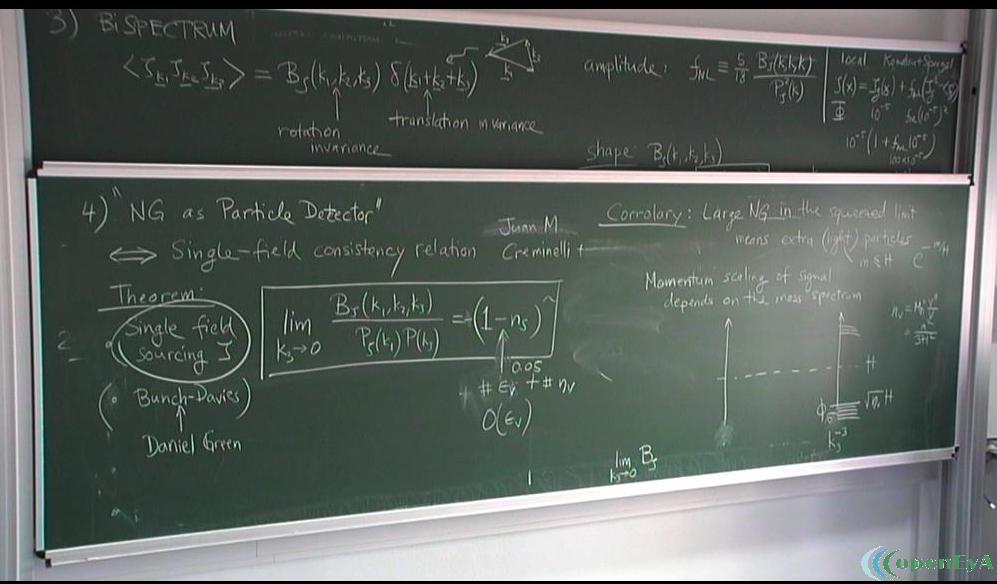 3) BISPECTRUM
⟨ζ_k1 ζ_k2 ζ_k3⟩ = B_ζ(k₁,k₂,k₃) δ(k₁+k₂+k₃)
rotation invariance
translation invariance
amplitude: f_NL ≡ 5/18 B_ζ(k,k,k)/P_ζ²(k)
shape: B_ζ(k₁,k₂,k₃)
local
Φ 10⁻⁵ f_NL(10⁻⁵)²
10⁻⁵(1 + f_NL 10⁻⁵)
4) "NG as Particle Detector"
⟺ Single-field consistency relation
Juan M
Creminelli +
Theorem:
2
• Single field
sourcing ζ
(• Bunch-Davies)
Daniel Green
lim k₃→0 B_ζ(k₁,k₂,k₃)/P_ζ(k₁)P(k₃) = (1-n_s)
0.05
+ # ε_v + # η_v
O(ε_v)
Corrolary: Large NG in the squeezed limit
means extra (light) particles
m ≲ H e^-m/H
Momentum scaling of signal
depends on the mass spectrum
H
√η H
k₃⁻³
lim k₃→0 B_ζ
openEyA